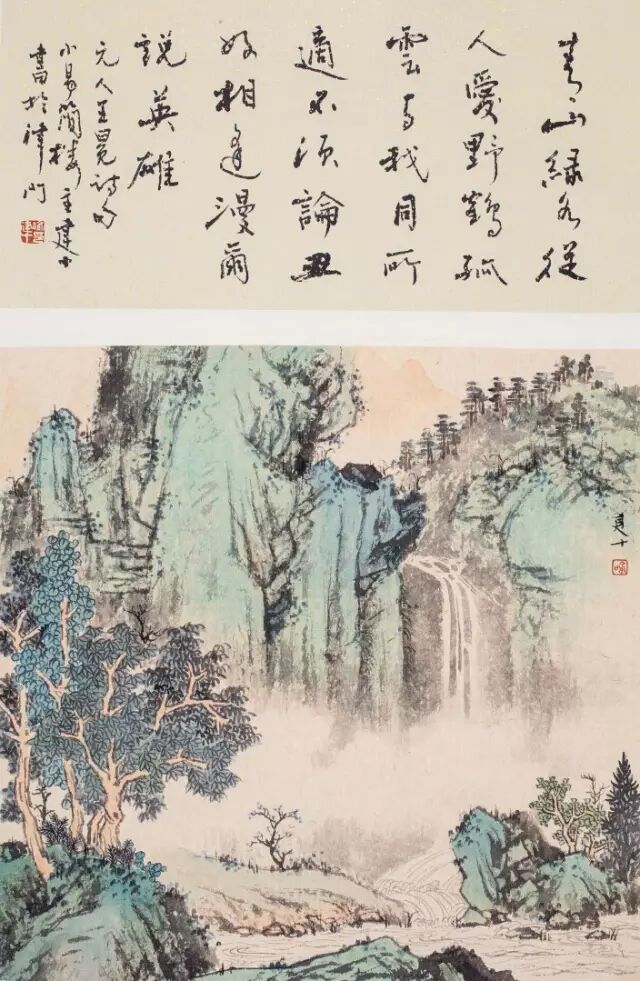 青山綠水從
人愛野鶴孤
雲与我同所
適不須論丑
好相逢漫爾
說英雄
元人王冕詩句
小易簡樓主建十
書於津門
建十